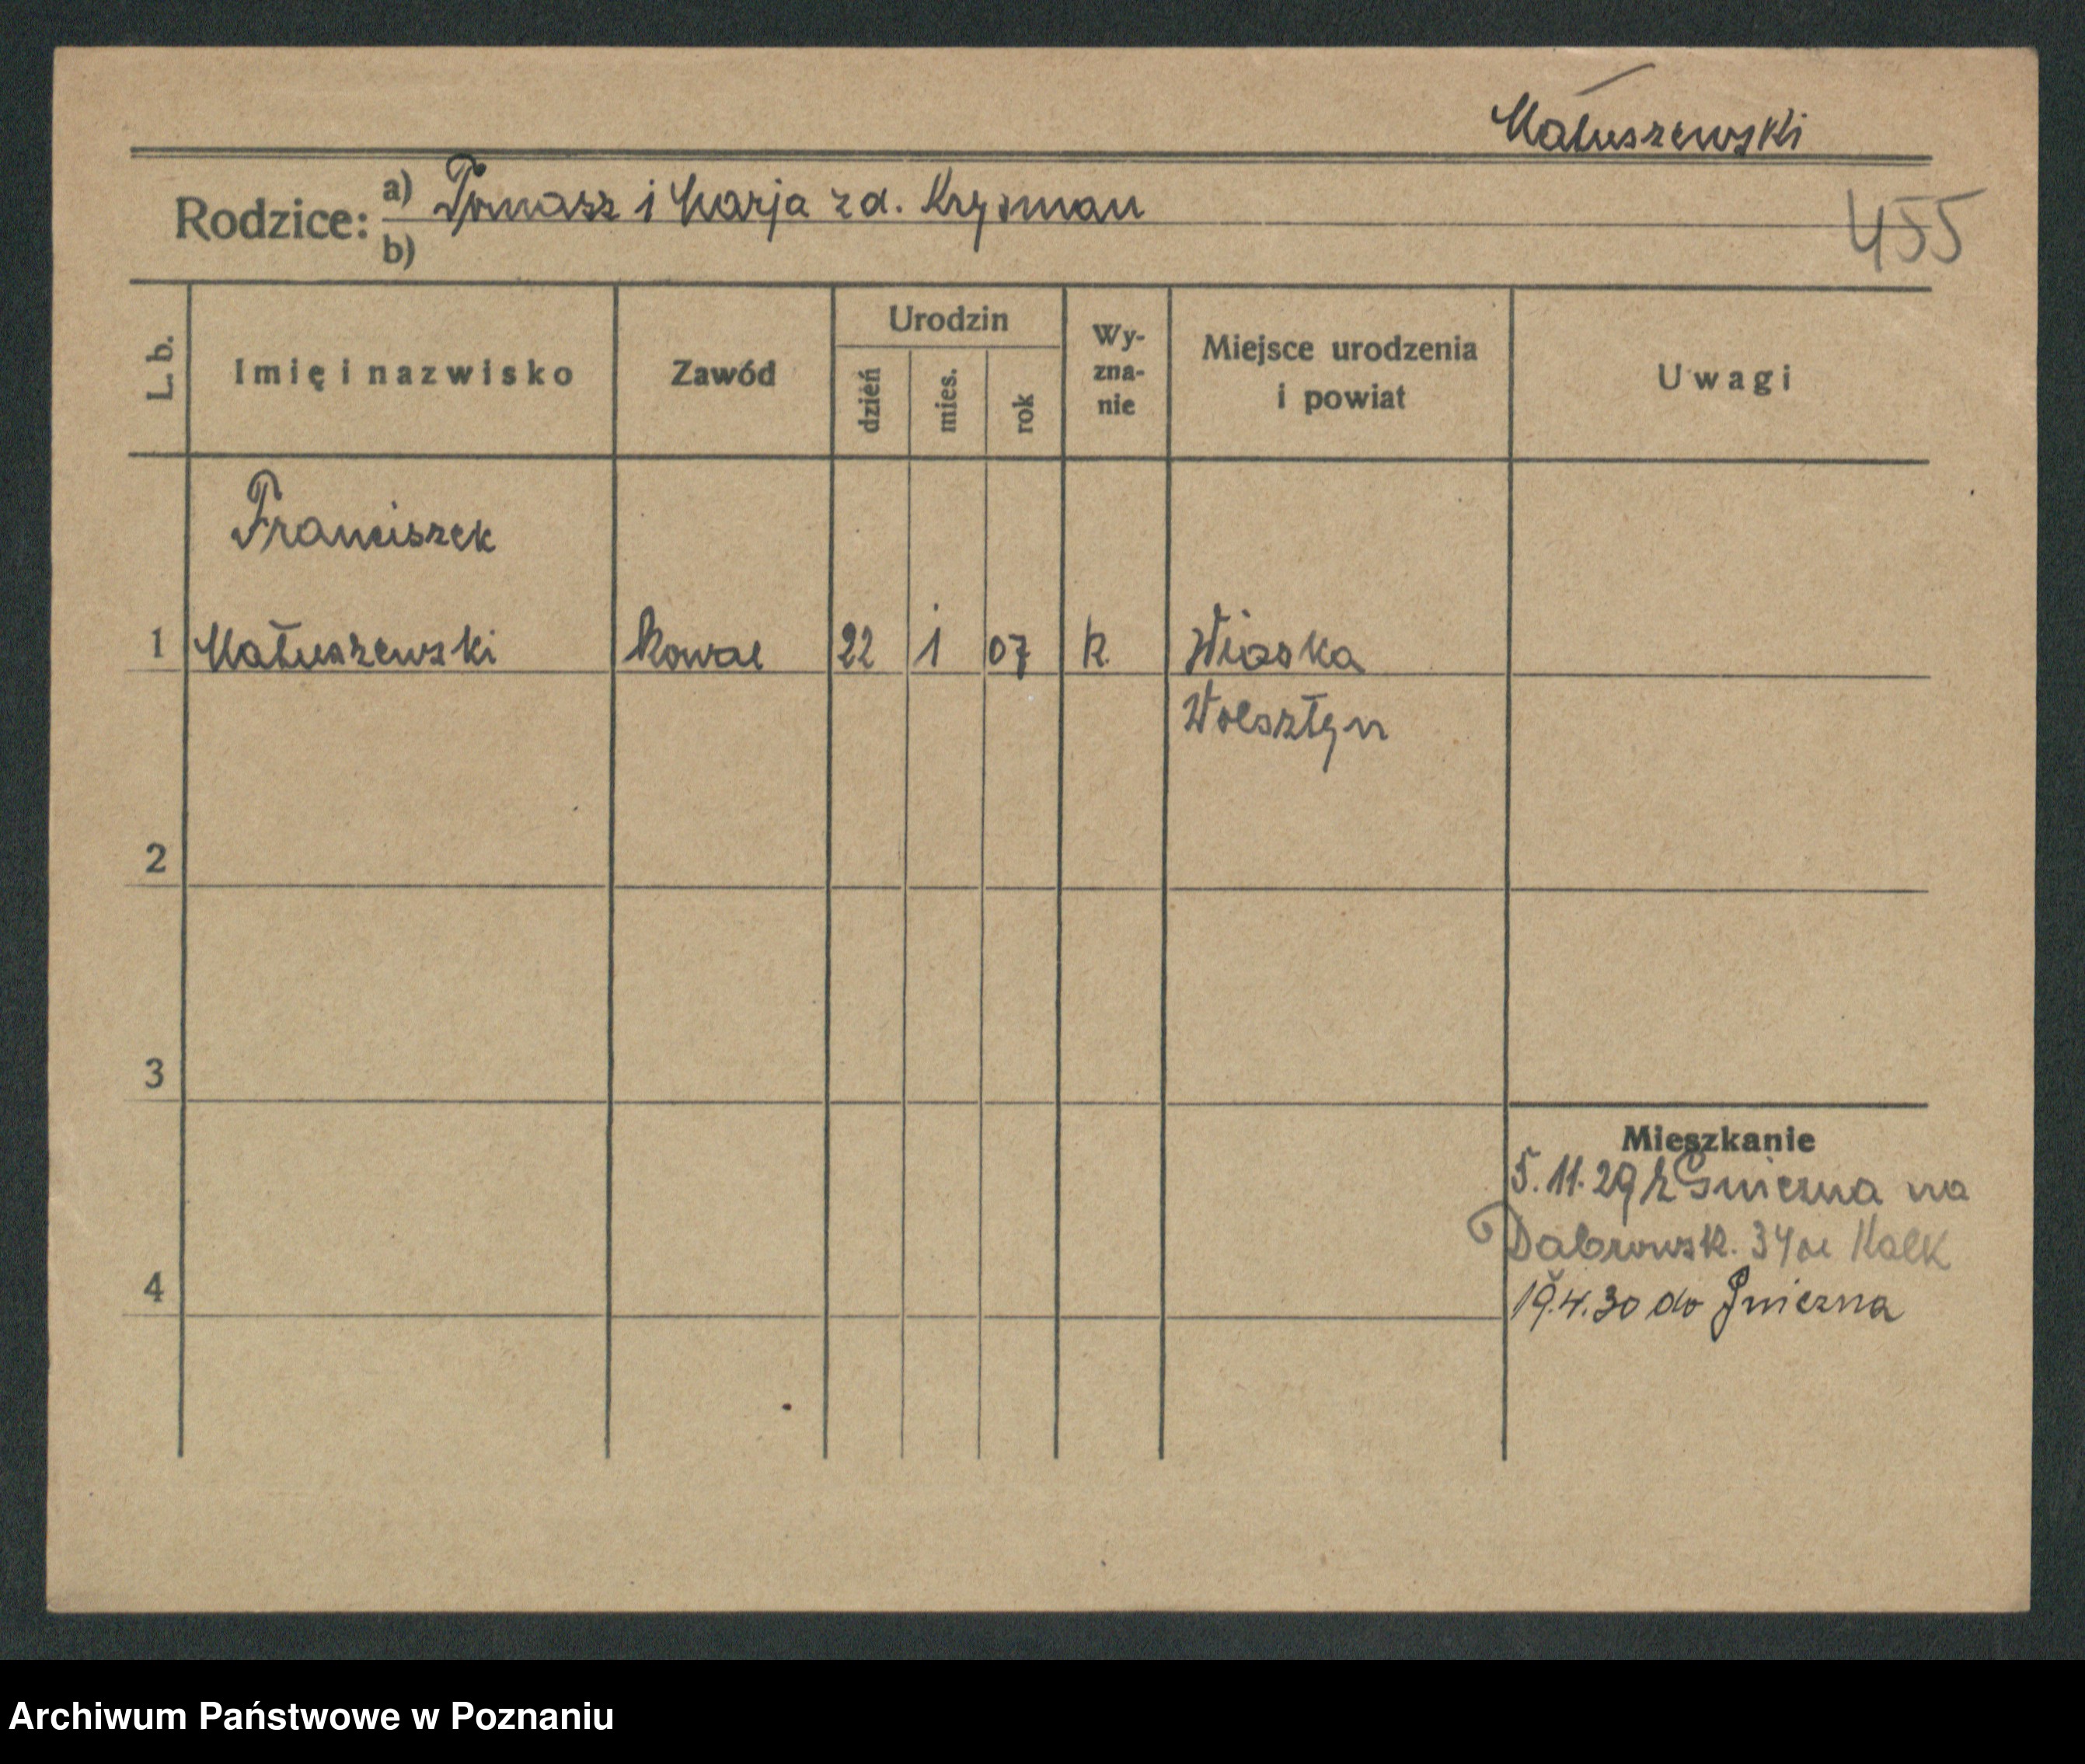 Matuszewski
Rodzice: a) Tomasz i Marja zd. Krysman
b)
455
L. b.
Imię i nazwisko
Zawód
Urodzin
dzień
mies.
rok
Wy-
zna-
nie
Miejsce urodzenia
i powiat
Uwagi
Franciszek
1 Matuszewski Kowal 22 1 07 k. Wioska
Wolsztyn
2
3
Mieszkanie
5.11.29 z Gniezna na
Dabrowsk. 34 Kalk
4
19.4.30 do Gniezna
Archiwum Państwowe w Poznaniu